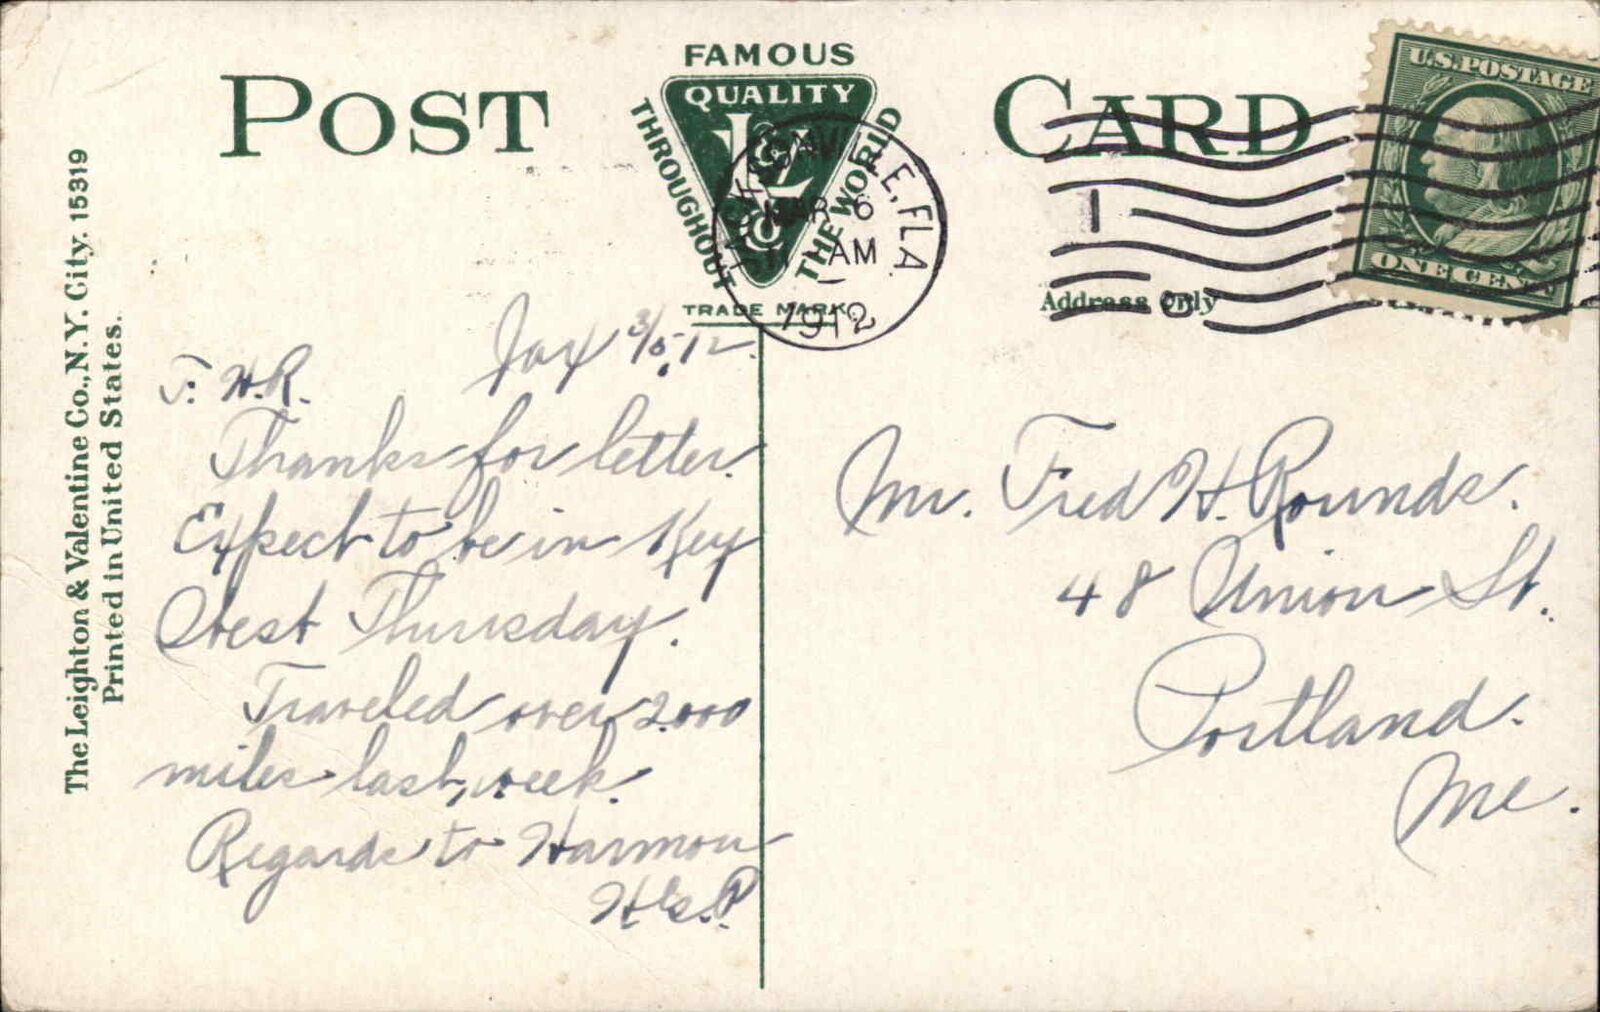 POST CARD
FAMOUS
QUALITY
L & V Co
THROUGHOUT
THE WORLD
TRADE MARK
JACKSONVILLE, FLA.
MAR 6
AM
1912
1
U.S. POSTAGE
ONE CENT
Address Only
The Leighton & Valentine Co., N.Y. City. 15319
Printed in United States.
Jax 3/5, 12.
F. H. R.
Thanks for letter.
Expect to be in Key
West Thursday.
Traveled over 2000
miles last week.
Regards to Harmon
Mr. Fred H. Rounds.
48 Union St.
Portland.
Me.